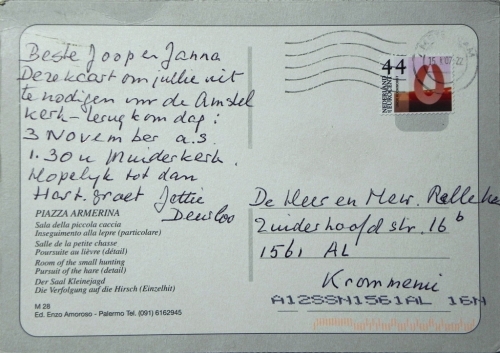 Beste Joop en Janna
Deze kaart om jullie uit
te nodigen voor de Amstel
kerk-terugkomdag:
3 November a.s.
1.30 u Muiderkerk.
Hopelijk tot dan
Hart. groet Jettie
PIAZZA ARMERINA
Sala della piccola caccia
Inseguimento alla lepre (particolare)
Salle de la petite chasse
Poursuite au lièvre (détail)
Room of the small hunting
Pursuit of the hare (detail)
Der Saal Kleinejagd
Die Verfolgung auf die Hirsch (Einzelhit)
M 28
Ed. Enzo Amoroso - Palermo Tel. (091) 6162945
44
NEDERLAND
De Heer en Mevr.
Zuiderhoofdstr. 16 b
1561 AL
Krommenie
A12SSN1561AL 16N